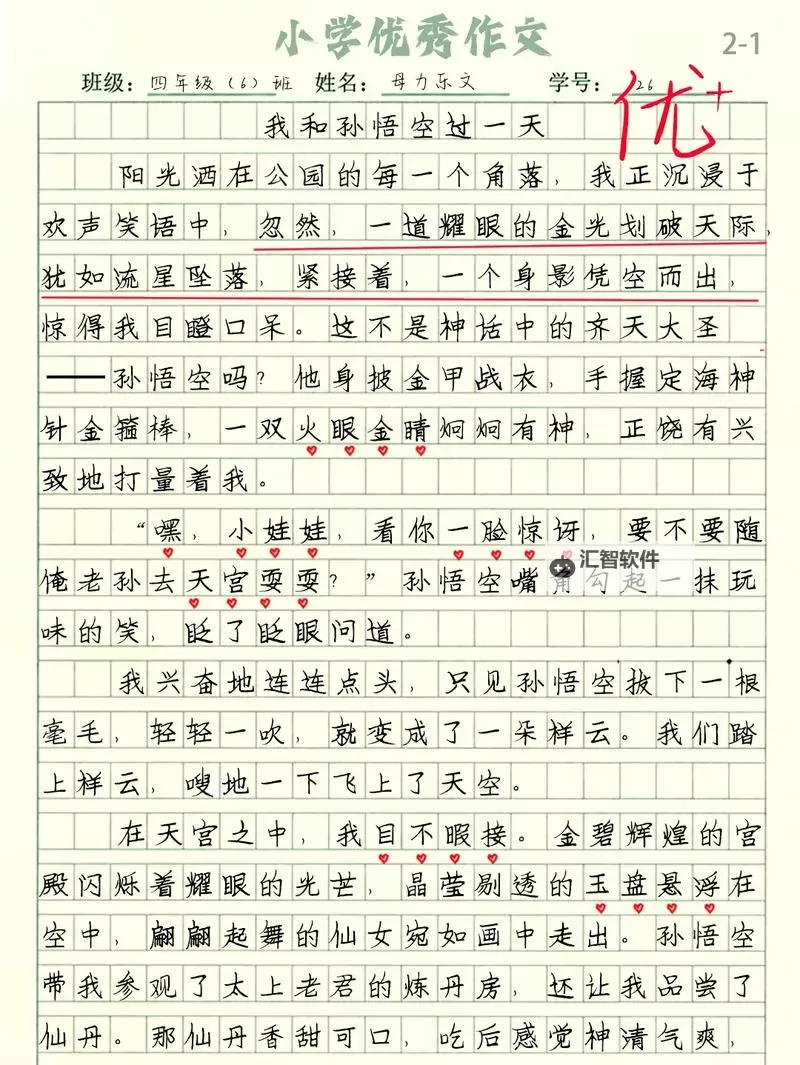 小学优秀作文
2-1
班级：四年级（6）班 姓名：母力乐文 学号：26
优+
我和孙悟空过一天
阳光洒在公园的每一个角落，我正沉浸于
欢声笑语中，忽然，一道耀眼的金光划破天际，
犹如流星坠落，紧接着，一个身影凭空而出，
惊得我目瞪口呆。这不是神话中的齐天大圣
——孙悟空吗？他身披金甲战衣，手握定海神
针金箍棒，一双火眼金睛炯炯有神，正饶有兴
致地打量着我。
“嘿，小娃娃，看你一脸惊讶，要不要随
俺老孙去天宫耍耍？”孙悟空嘴角勾起一抹玩
味的笑，眨了眨眼问道。
汇智软件
我兴奋地连连点头，只见孙悟空拔下一根
毫毛，轻轻一吹，就变成了一朵样云。我们踏
上样云，嗖地一下飞上了天空。
在天宫之中，我目不暇接。金碧辉煌的宫
殿闪烁着耀眼的光芒，晶莹剔透的玉盘悬浮在
空中，翩翩起舞的仙女宛如画中走出。孙悟空
带我参观了太上老君的炼丹房，还让我品尝了
仙丹。那仙丹香甜可口，吃后感觉神清气爽，